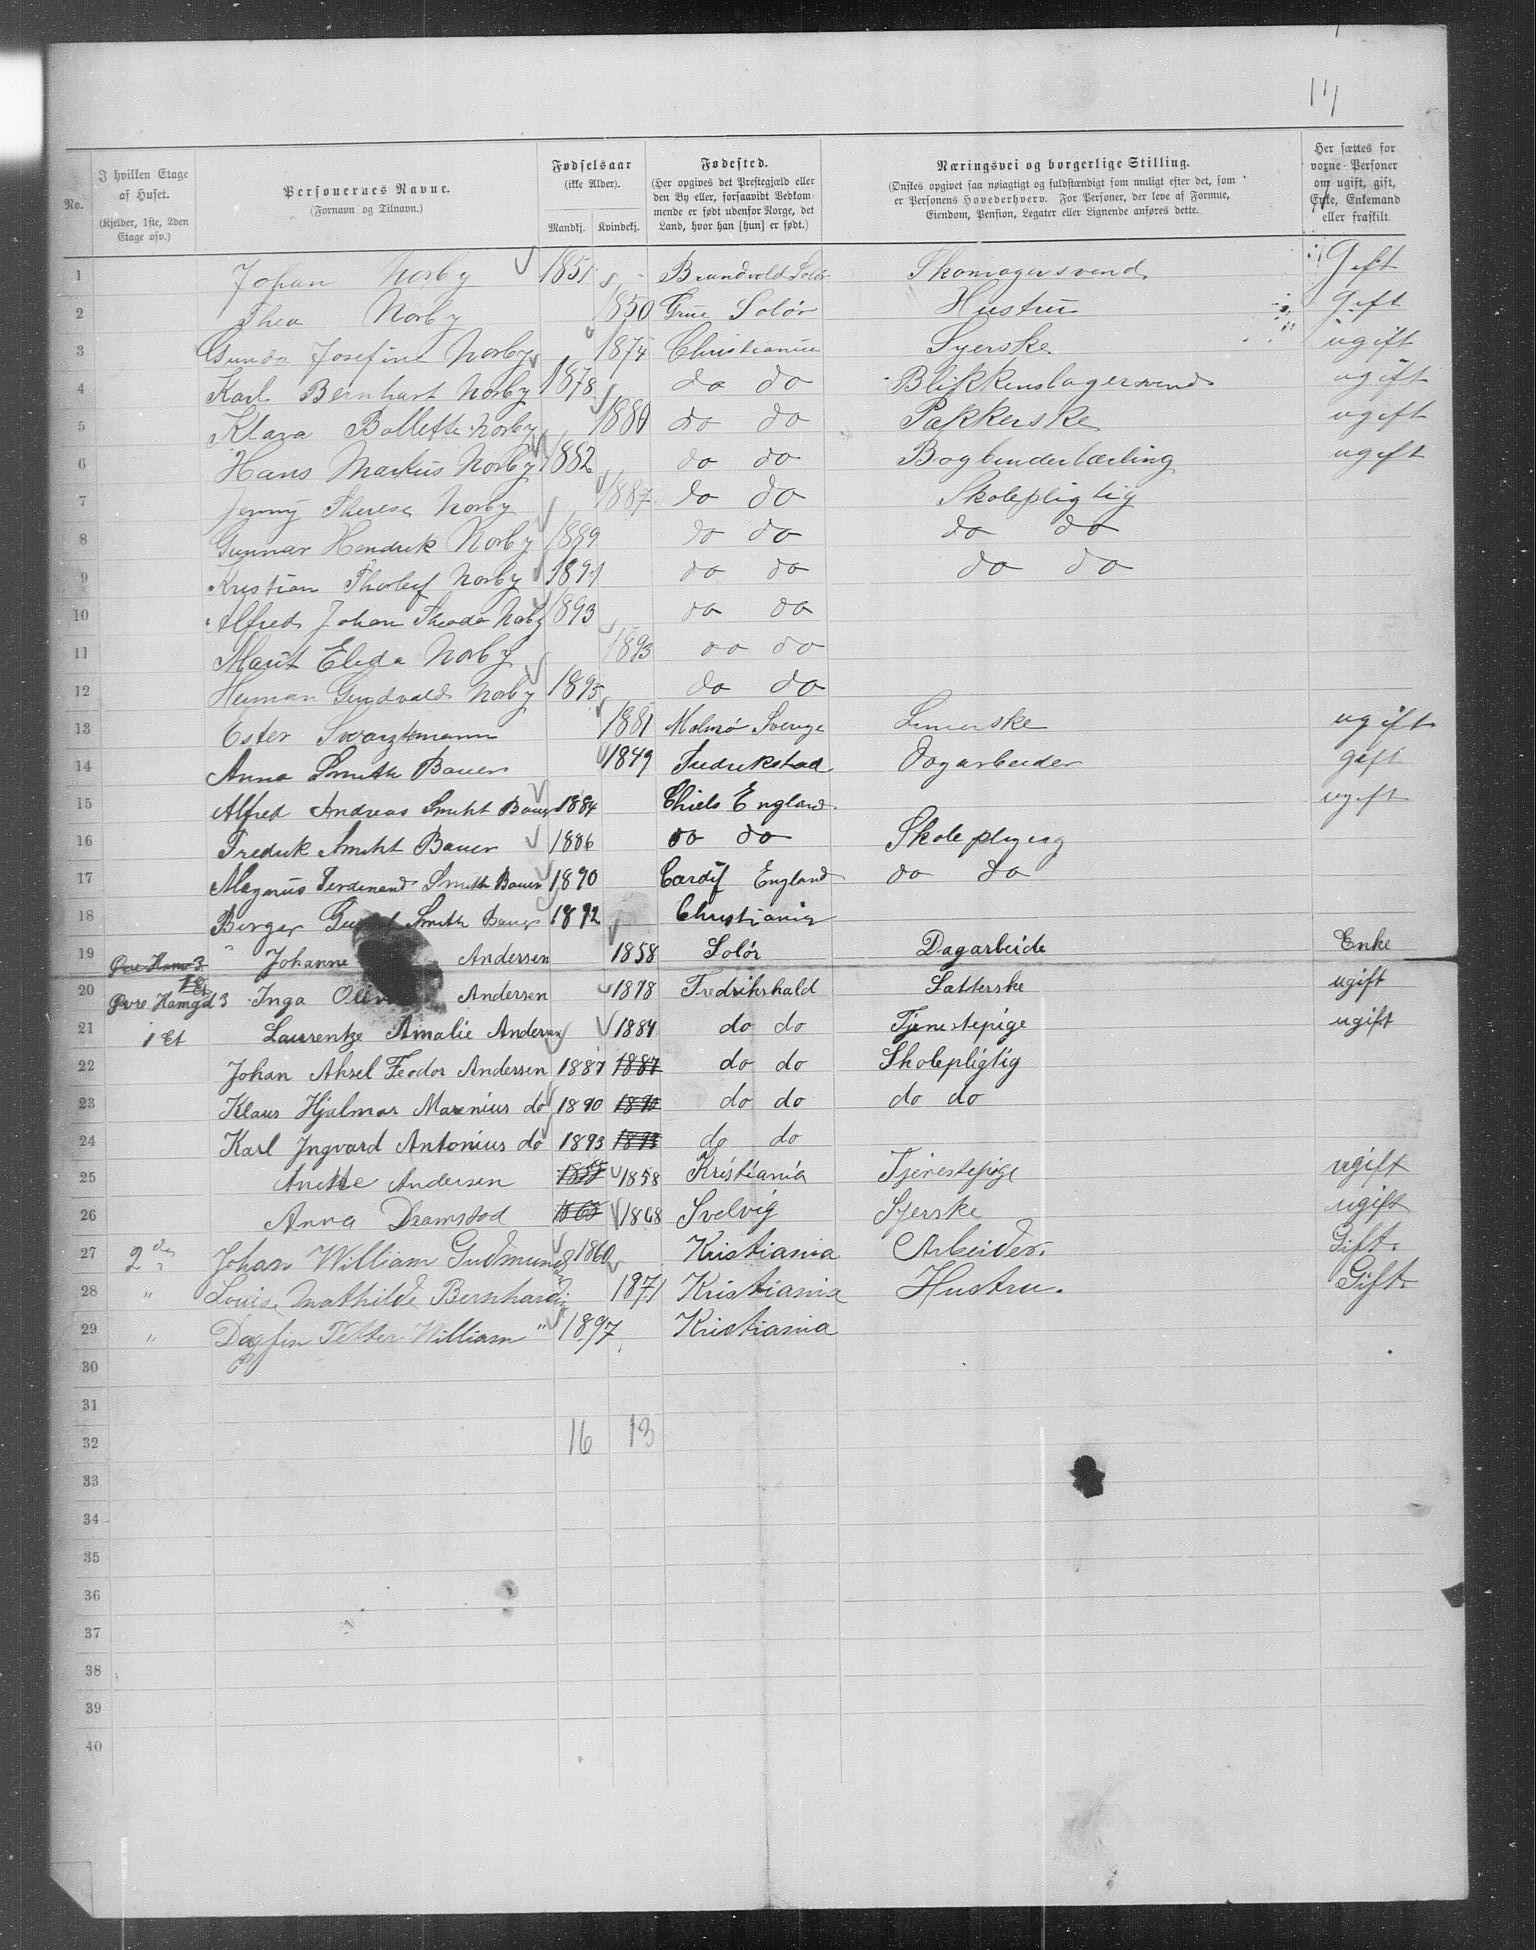 14
No.
I hvilken Etage af Huset. (Kjelder, 1ste, 2den Etage osv.)
Personernes Navne. (Fornavn og Tilnavn.)
Fødselsaar (ikke Alder). Mandkj. Kvindekj.
Fødested. (Her opgives det Prestegjæld eller den By eller, forsaavidt Vedkommende er født udenfor Norge, det Land, hvor han [hun] er født.)
Næringsvei og borgerlige Stilling. (Ønskes opgivet saa nøiagtigt og fuldstændigt som muligt efter det, som er Personens Hovederhverv. For Personer, der leve af Formue, Eiendom, Pension, Legater eller Lignende anføres dette.
Her sættes for voxne Personer om ugift, gift, Enke, Enkemand eller fraskilt.
1 Johan Norby 1851 Brandvold Solør Skomagersvend Gift
2 Thea Norby 1850 Grue Solør Hustru gift
3 Gunda Josefine Norby 1874 Christiania Syerske ugift
4 Karl Bernhart Norby 1878 do do Blikkenslagersvend ugift
5 Klara Bollette Norby 1880 do do Pakkerske ugift
6 Hans Markus Norby 1882 do do Bogbinderlærling ugift
7 Jenny Therese Norby 1887 do do Skolepligtig
8 Gunnar Hendrik Norby 1889 do do do do
9 Kristian Thorleif Norby 1891 do do do do
10 Alfred Johan Theodor Norby 1893 do do
11 Marit Elida Norby 1893 do do
12 Herman Gundvald Norby 1895 do do
13 Ester Svarzkmann 1881 Malmø Sverige ugift
14 Anna Smith Bauer 1849 Fredrikstad Dagarbeider gift
15 Alfred Andreas Smiht Bauer 1884 Chiels England ugift
16 Fredrik Smiht Bauer 1886 do do Skolepligtig
17 Magnus Ferdinand Smith Bauer 1890 Cardif England do do
18 Birger Smith Bauer 1892 Christiania
19 Øvre Hamg 3 " Johanne Andersen 1858 Solør Dagarbeide Enke
1 Et
20 Øvre Hamgd 3 Inga Andersen 1878 Fredrikshald Satterske ugift
21 1 Et Laurentze Amalie Andersen 1884 do do Tjenestepige ugift
22 Johan Aksel Feodor Andersen 1887 1887 do do Skolepligtig
23 Klaus Hjalmar Marenius do 1890 1890 do do do do
24 Karl Ingvard Antonius do 1893 1893 do do
25 Anette Andersen 1858 1858 Kristiania Tjenestepige ugift
26 Anna Dramstad 1868 1868 Svelvig Syerske ugift
27 2den Johan William Gudmundsen 1860 Kristiania Arbeider. Gift.
28 " Louise Mathilde Bernhardine 1871 Kristiania Hustru. Gift.
29 " Dagfin Petter William " 1897 Kristiania
30
31
32 16 13
33
34
35
36
37
38
39
40